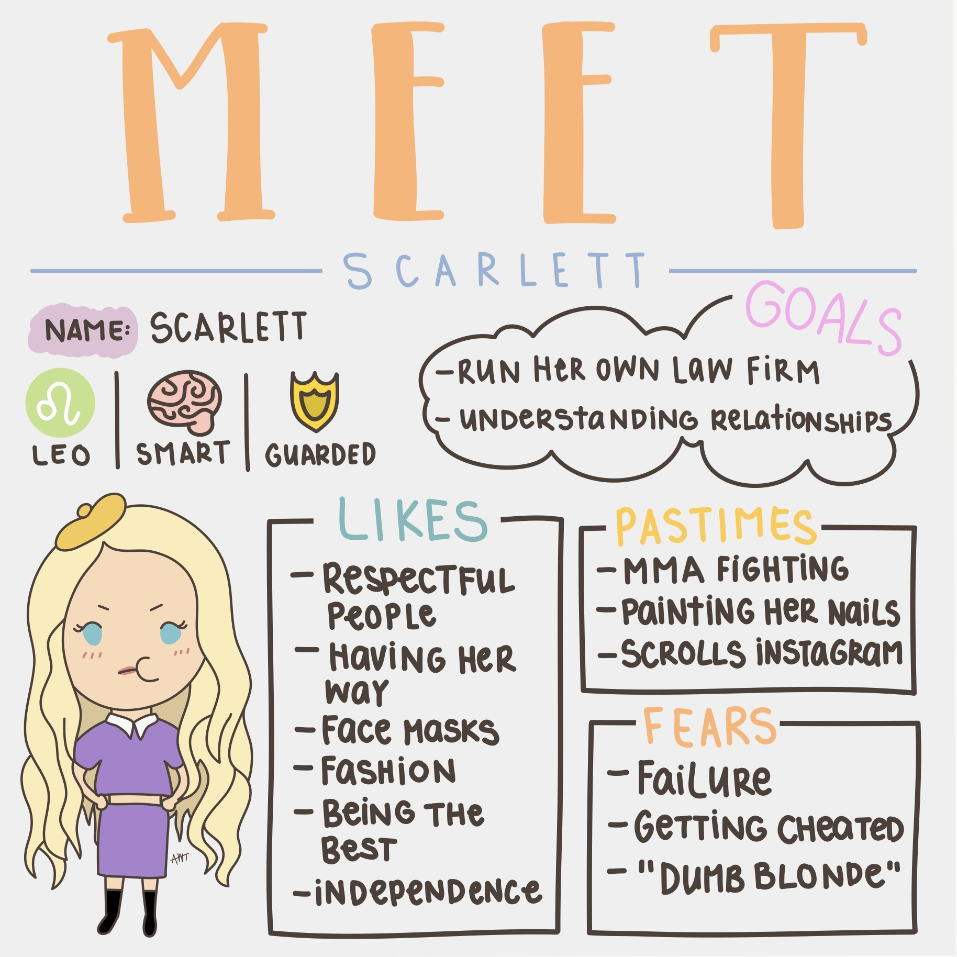 MEET
SCARLETT
NAME: SCARLETT
LEO
SMART
GUARDED
GOALS
-RUN HER OWN LAW FIRM
- UNDERSTANDING RELATIONSHIPS
LIKES
- RESPECTFUL
PEOPLE
- HAVING HER
WAY
- FACE MASKS
- FASHION
- BEING THE
BEST
-INDEPENDENCE
PASTIMES
-MMA FIGHTING
-PAINTING HER NAILS
-SCROLLS INSTAGRAM
FEARS
- FAILURE
-GETTING CHEATED
- "DUMB BLONDE"